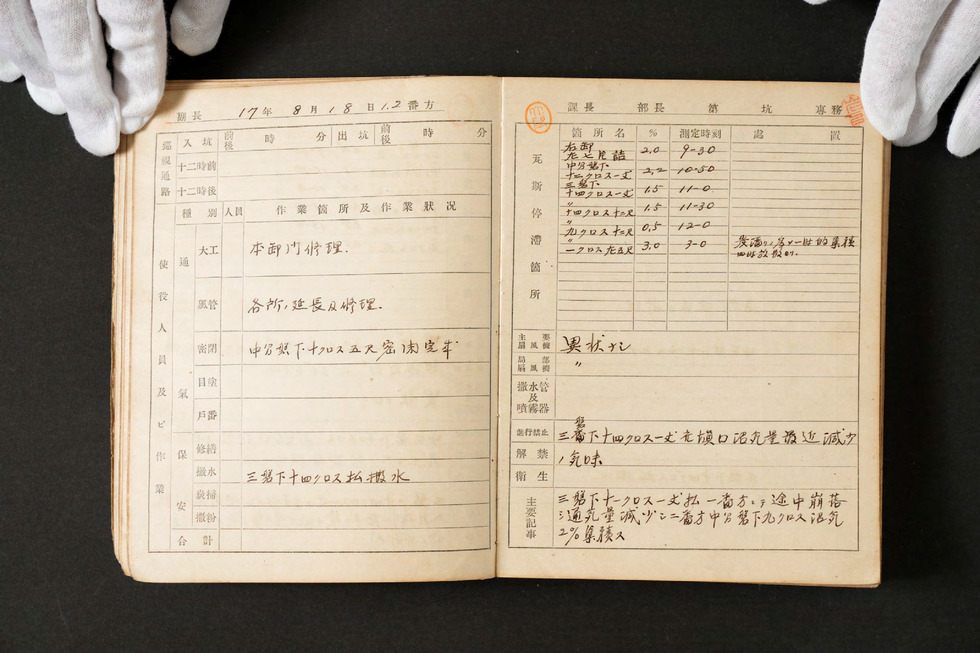 副長 17年 8月 18日 1.2番方
巡視通路 入坑 前後 時 分 出坑 前後 時 分
十二時前
十二時後
使役人員及ビ作業
種別 人員 作業箇所及作業状况
通氣
大工 本卸門修理.
風管 各所ノ延長及修理.
密閉 中分盤下十クロス五尺密閉完成
目塗
戸番
保安
修繕
撒水 三盤下十四クロス払撒水
炭掃
撒粉
合計
課長 部長 第 坑 専務
瓦斯停滞箇所
箇所名 % 測定時刻 處置
左卸
左七片詰 2.0 9-30
中分盤下
十二クロス一丈 2.2 10-50
三盤下
十四クロス一丈 1.5 11-0
〃
十四クロス十二尺 1.5 11-30
〃
九クロス十二尺 0.5 12-0
〃
一クロス左五尺 3.0 3-0 一時的集積
主要扇風機 異状ナシ
局部扇風機 〃
撒水管及噴霧器
進行禁止
解禁
三盤下十四クロス一丈 坑口沼気量最近減少
ノ気味
衛生
主要記事
三盤下十一クロス一丈払一番方ニテ途中崩落
シ通気量減少シ二番方中分盤下九クロス沼気
2%集積ス